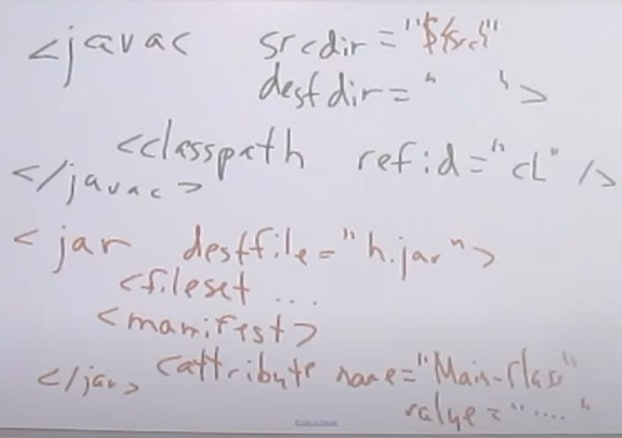 <javac srcdir="${src}"
destdir=" ">
<classpath refid="cl" />
</javac>
<jar destfile="h.jar">
<fileset ...
<manifest>
<attribute name="Main-Class"
</jar>
value="....."